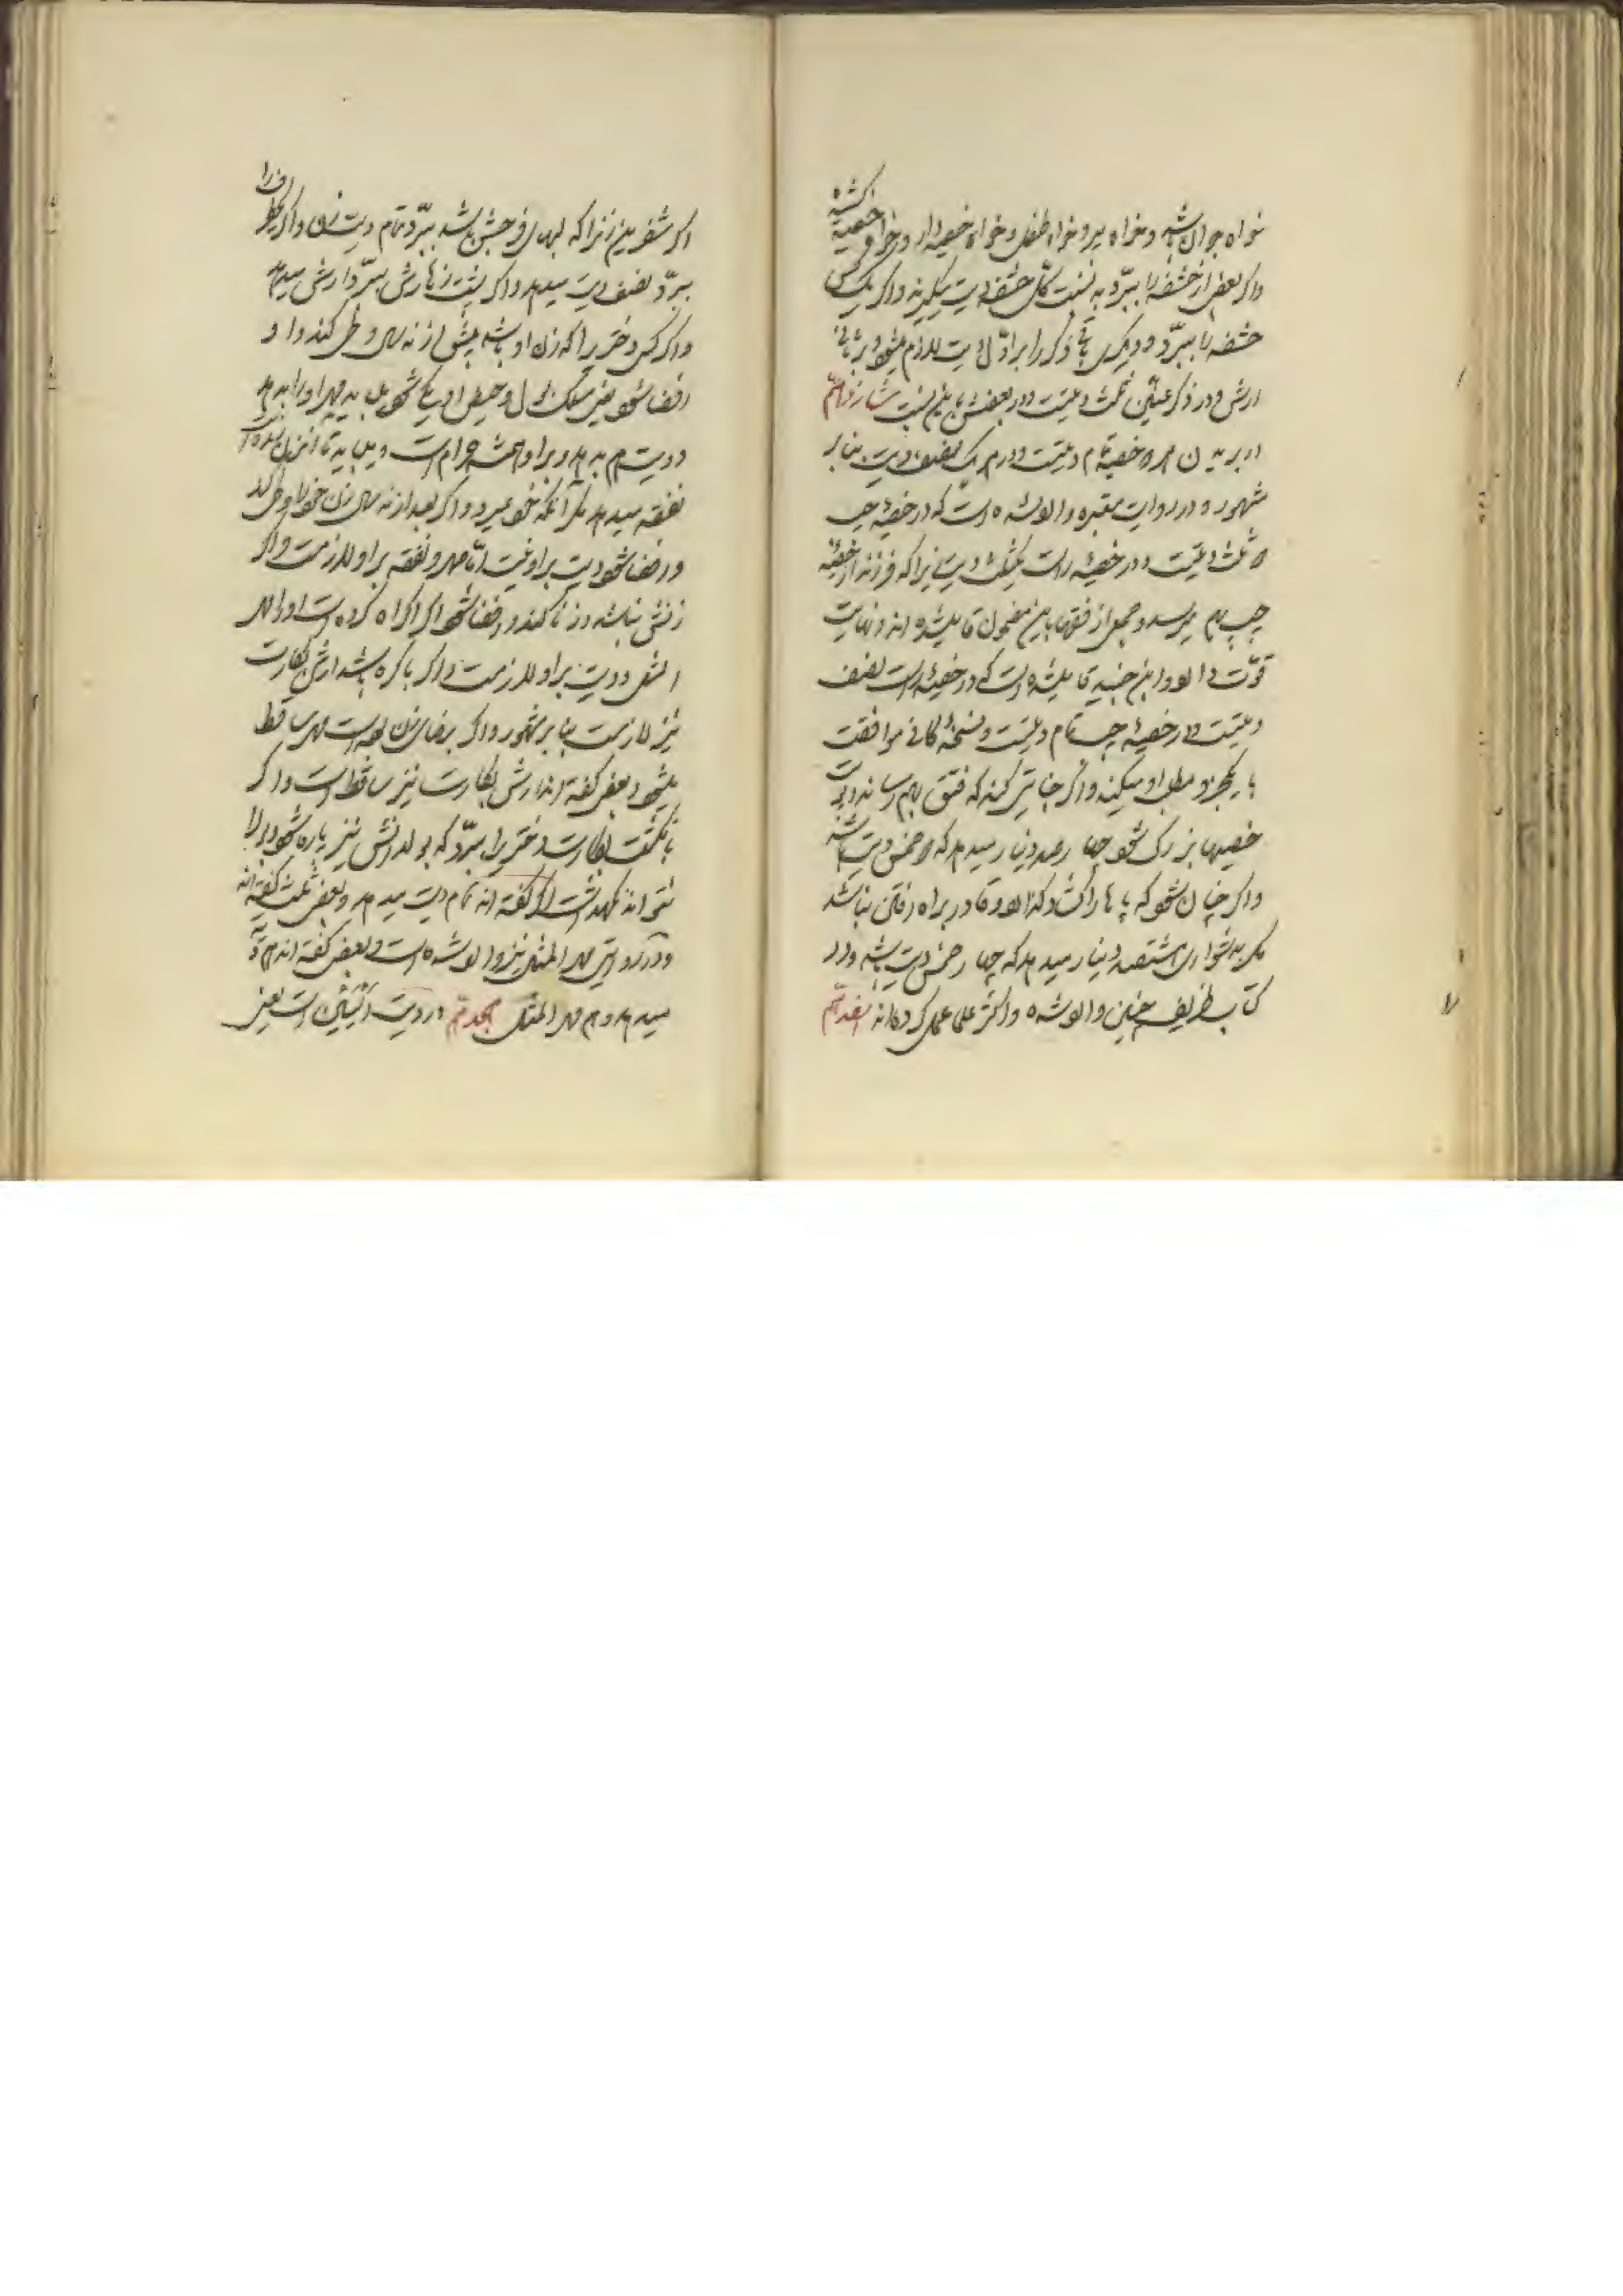 خواه جوان باشد و خواه پیر و خواه طفل و خواه خصیه‌دار و خواه خصیه کشیده
و اگر بعض از حشفه را ببرّد به نسبت کلّ حشفه دیت میگیرند و اگر یک کس
حشفه را ببرّد و دیگری باقی ذکر را بر اوّل دیت لازم میشود و بر ثانی
ارش و در ذکر عنّین ثلث دیتست و در بعضش باین نسبت شانزدهم
در بریدن هر دو خصیه تمام دیتست و در هر یک نصف دیت بنا بر
مشهور و در روایت معتبره وارد شده است که در خصیهٔ چپ
دو ثلث دیتست و در خصیهٔ راست یکثلث دیت زیرا که فرزند از خصیهٔ
چپ بهم میرسد و جمعی از فقها باین مضمون قایل شده اند و نهایت
قوّت دارد و ابن جنید قایل شده است که در خصیهٔ راست نصف
دیتست و در خصیهٔ چپ تمام دیتست و نسخهٔ کافی موافقت
با یکجزو مطلب او میکند و اگر جنایتی کند که فتق بهم رساند و
خصیها بزرک شود چهار صد دینار میدهد که دو خمس دیت باشد
و اگر چنان شود که پاها را کشاده کذارد و قادر بر راه رفتن نباشد
مکر بدشواری هشتصد دینار میدهد که چهار خمس دیت باشد و در
کتاب ظریف چنین وارد شده و اکثر علما عمل کرده‌اند هفدهم
اکر شفرین زنرا که لبهای فرجش باشد ببرّد تمام دیت زن و اکر یکطرف را
ببرّد نصف دیت میدهد و اکر پشت زهارش ببرّد ارش میدهد
و اکر کسی دختریرا که زن او باشد پیش از نه سالکی وطی کند و او
افضا شود یعنی مسلک بول و حیض او یکی شود میباید مهر او را بدهد
و دیت هم بدهد و بر او همیشه حرام است و میباید تا آنزن زنده است
نفقه میدهد مکر آنکه خود بمیرد و اکر بعد از نه سالکی زن خود را وطی کند
و افضا شود دیت بر او نیست امّا مهر و نفقه بر او لازمست و اکر
زنش نباشد و زنا کند و افضا شود اکر اکراه کرده است او را مهر
المثل و دیت بر او لازمست و اکر باکره باشد ارش بکارت
نیز لازمست بنا بر مشهور و اکر برضای زن بوده است مهر ساقط
میشود و بعضی کفته اند ارش بکارت نیز ساقط است و اکر
بانکشت بکارت دختریرا ببرّد که بولدانش نیز پاره شود و بول را
نتواند نکهداشت اکثر کفته اند تمام دیت میدهد و بعضی ثلث کفته اند
و در روایتی مهر المثل نیز وارد شده است و بعضی کفته اند هم دیت
میدهد و هم مهر المثل هجدهم در دیت الیتین است یعنی